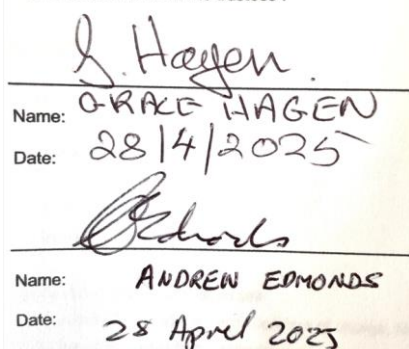 G. Hagen.
Name: GRACE HAGEN
Date: 28/4/2025
Name: ANDREW EDMONDS
Date: 28 April 2025